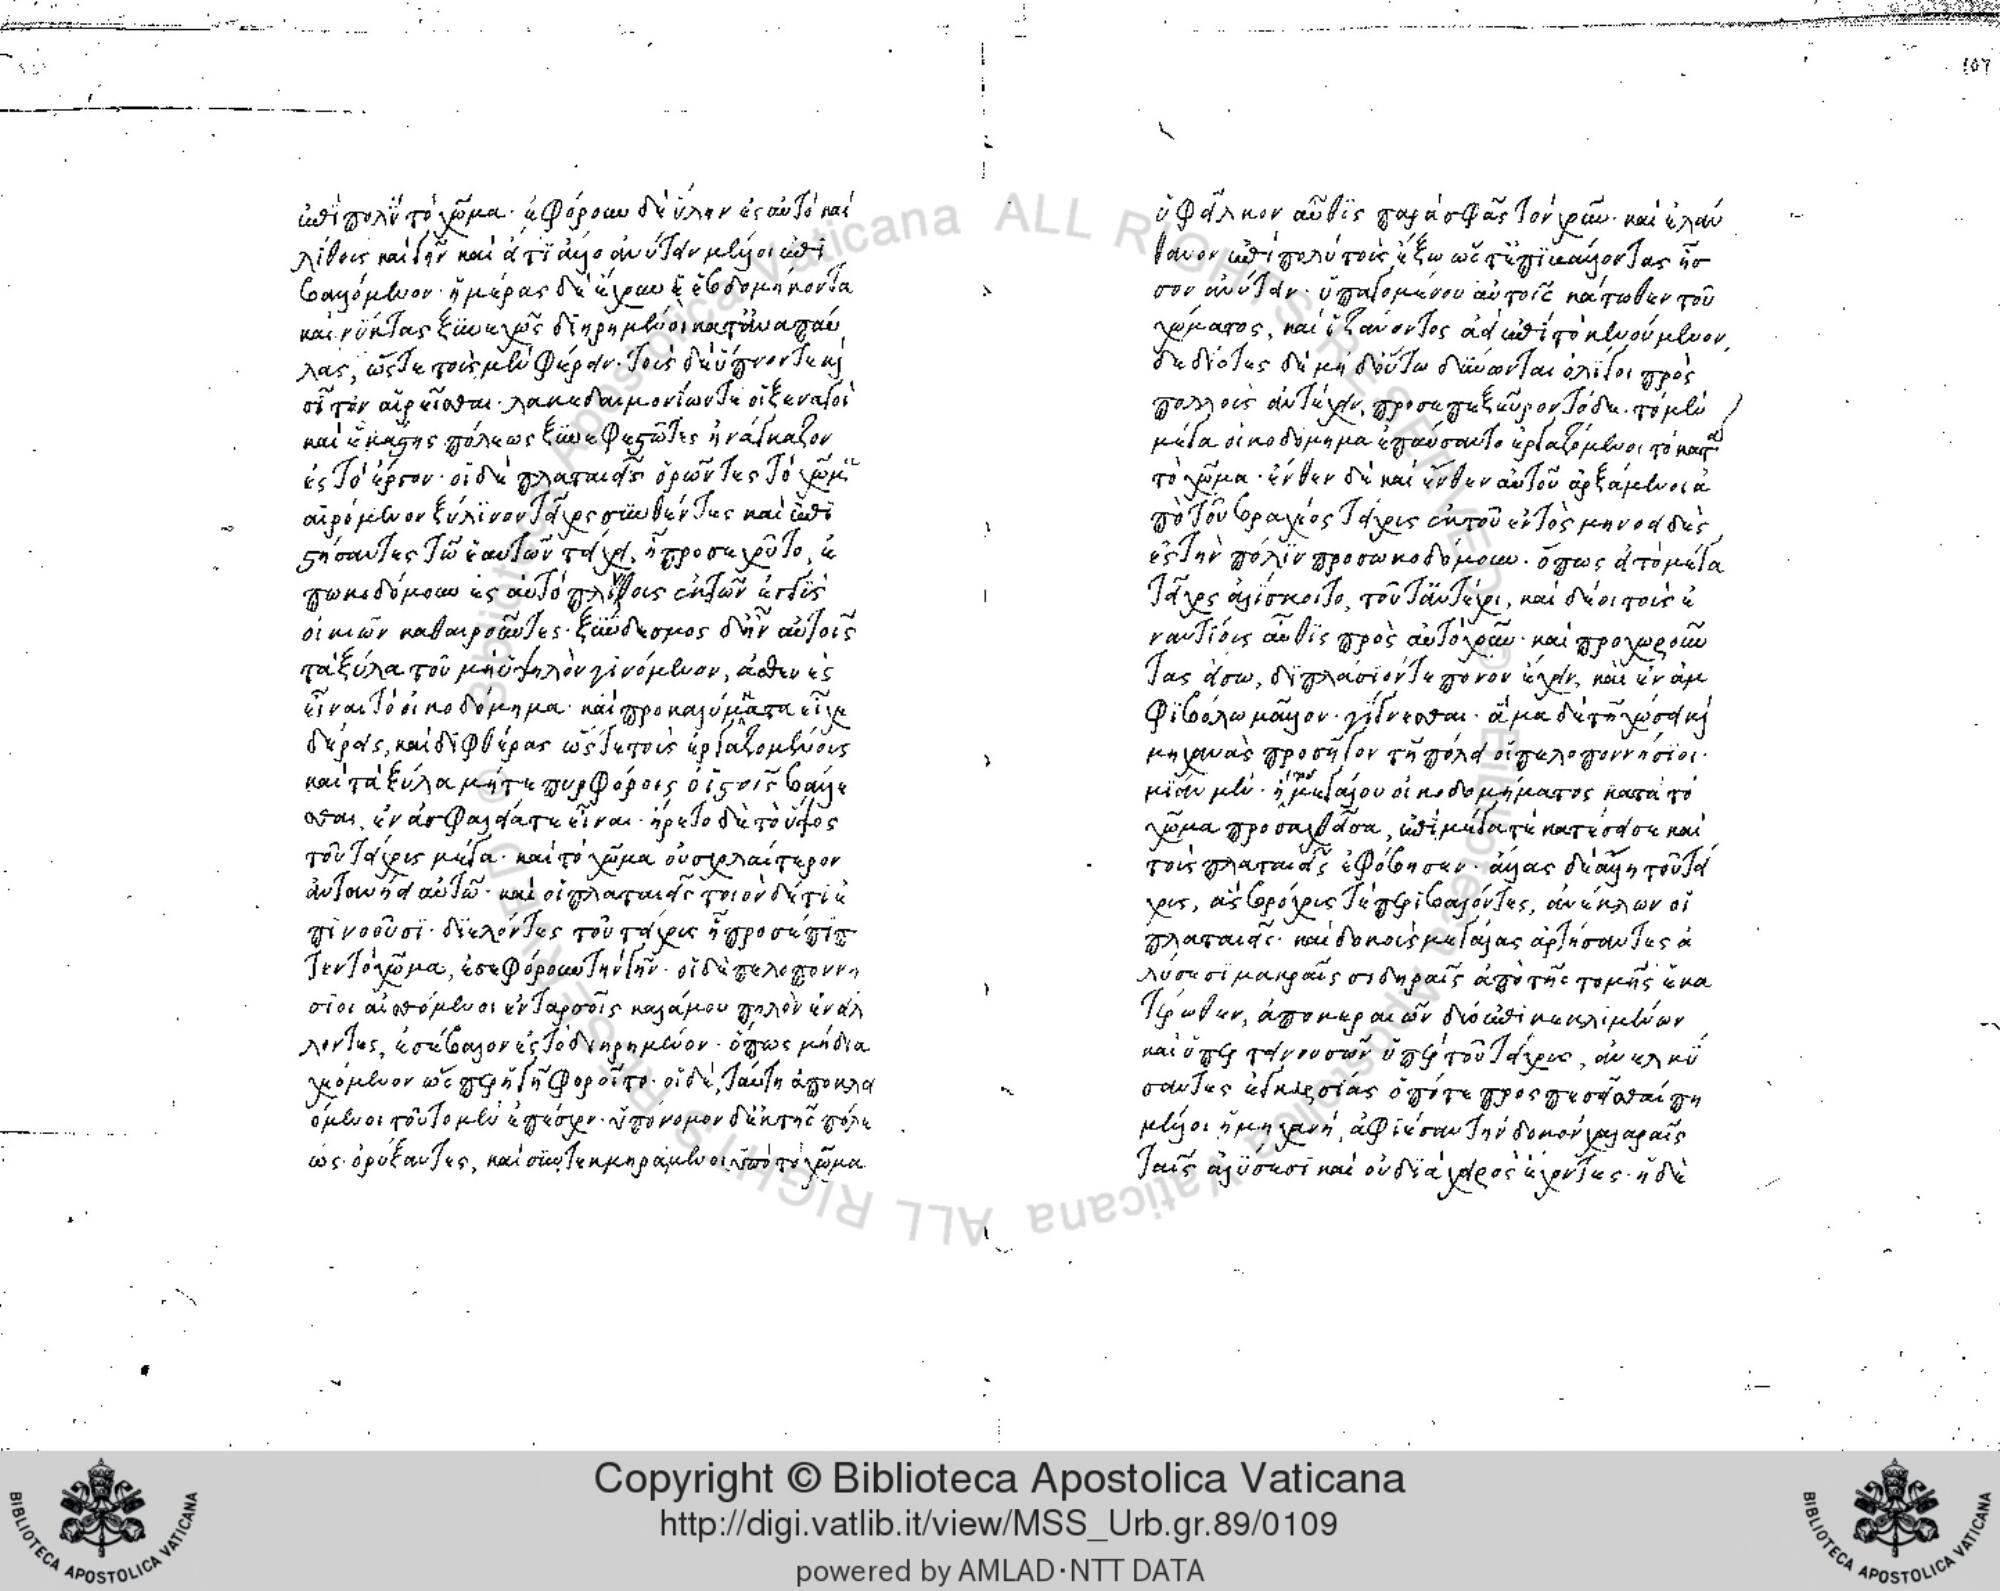 ἐπὶ πολὺ τὸ χῶμα· ἐφόρουν δὲ ὕλην ἐς αὐτὸ καὶ
λίθους καὶ γῆν καὶ εἴ τι ἄλλο ἀνύτειν μέλλοι ἐπι
βαλλόμενον· ἡμέρας δὲ ἔχουν ἑβδομήκοντα
καὶ νύκτας ξυνεχῶς διῃρημένοι κατ' ἀναπαύ
λας, ὥστε τοὺς μὲν φέρειν· τοὺς δὲ ὕπνον τε καὶ
σῖτον αἱρεῖσθαι· λακεδαιμονίων τε οἱ ξεναγοὶ
καὶ ἑκάστης πόλεως ξυνεφεστῶτες ἠνάγκαζον
ἐς τὸ ἔργον· οἱ δὲ πλαταιεῖς ὁρῶντες τὸ χῶμα
αἰρόμενον ξύλινον τεῖχος συνθέντες καὶ ἐπι
στήσαντες τῷ ἑαυτῶν τείχει, ᾗ προσεχοῦτο, ἐ
πωκοδόμουν ἐς αὐτὸ πλίνθους ἐκ τῶν ἐγγὺς
οἰκιῶν καθαιροῦντες· ξύνδεσμος δ' ἦν αὐτοῖς
τὰ ξύλα τοῦ μὴ ὑψηλὸν γινόμενον, ἀσθενὲς
εἶναι τὸ οἰκοδόμημα· καὶ προκαλύμματα εἶχε
δέρρεις, καὶ διφθέρας ὥστε τοὺς ἐργαζομένους
καὶ τὰ ξύλα μήτε πυρφόροις οἰστοῖς βάλλε
σθαι, ἐν ἀσφαλείᾳ τε εἶναι· ᾔρετο δὲ τὸ ὕψος
τοῦ τείχους μέγα· καὶ τὸ χῶμα οὐ σχολαίτερον
ἀντανῄει αὐτῷ· καὶ οἱ πλαταιεῖς τοιόνδε τι ἐ
πινοοῦσι· διελόντες τοῦ τείχους ᾗ προσέπιπ
τεν τὸ χῶμα, ἐσεφόρουν τὴν γῆν· οἱ δὲ πελοποννή
σιοι αἰσθόμενοι ἐν ταρσοῖς καλάμου πηλὸν ἐνείλ
λοντες, ἐσέβαλλον ἐς τὸ διῃρημένον· ὅπως μὴ δια
χεόμενον ὥσπερ ἡ γῆ φοροῖτο· οἱ δὲ, ταύτῃ ἀποκλει
όμενοι τοῦτο μὲν ἐπέσχον· ὑπόνομον δὲ ἐκ τῆς πόλε
ως ὀρύξαντες, καὶ συντεκμηράμενοι ὑπὸ τὸ χῶμα
107
ὑφεῖλκον αὖθις παρὰ σφᾶς τὸν χοῦν· καὶ ἐλάν
θανον ἐπὶ πολὺ τοὺς ἔξω ὥστε ἐπιβάλλοντας ἧσ
σον ἀνύτειν· ὑπαγομένου αὐτοῖς κάτωθεν τοῦ
χώματος, καὶ ἱζάνοντος ἀεὶ ἐπὶ τὸ κενούμενον,
δεδιότες δὲ μὴ δ' οὕτω δύνωνται ὀλίγοι πρὸς
πολλοὺς ἀντέχειν, προσεπεξεῦρον τόδε· τὸ μὲν
μέγα οἰκοδόμημα ἐπαύσαντο ἐργαζόμενοι τὸ κατὰ
τὸ χῶμα· ἔνθεν δὲ καὶ ἔνθεν αὐτοῦ ἀρξάμενοι ἀ
πὸ τοῦ βραχέος τείχους ἐκ τοῦ ἐντὸς μηνοειδὲς
ἐς τὴν πόλιν προσῳκοδόμουν· ὅπως εἰ τὸ μέγα
τεῖχος ἁλίσκοιτο, τοῦτ' ἀντέχοι, καὶ δέοι τοὺς ἐ
ναντίους αὖθις πρὸς αὐτὸ χοῦν· καὶ προχωροῦν
τας εἴσω, διπλάσιόν τε πόνον ἔχειν, καὶ ἐν ἀμ
φιβόλῳ μᾶλλον· γίγνεσθαι· ἅμα δὲ τῇ χώσει καὶ
μηχανὰς προσῆγον τῇ πόλει οἱ πελοποννήσιοι·
μίαν μὲν· ἣ τοῦ μεγάλου οἰκοδομήματος κατὰ τὸ
χῶμα προσαχθεῖσα, ἐπὶ μέγα τε κατέσεισε καὶ
τοὺς πλαταιεῖς ἐφόβησεν· ἄλλας δὲ ἄλλῃ τοῦ τεί
χους, ἃς βρόχους τε περιβαλόντες, ἀνέκλων οἱ
πλαταιεῖς· καὶ δοκοὺς μεγάλας ἀρτήσαντες ἁ
λύσεσι μακραῖς σιδηραῖς ἀπὸ τῆς τομῆς ἑκα
τέρωθεν, ἀπὸ κεραιῶν δύο ἐπικεκλιμένων
καὶ ὑπερτεινουσῶν ὑπὲρ τοῦ τείχους, ἀνελκύ
σαντες ἐγκαρσίας ὁπότε προσπεσεῖσθαί πη
μέλλοι ἡ μηχανή, ἀφίεσαν τὴν δοκὸν χαλαραῖς
ταῖς ἁλύσεσι καὶ οὐ διὰ χειρὸς ἔχοντες· ἡ δὲ
Copyright © Biblioteca Apostolica Vaticana
http://digi.vatlib.it/view/MSS_Urb.gr.89/0109
powered by AMLAD·NTT DATA